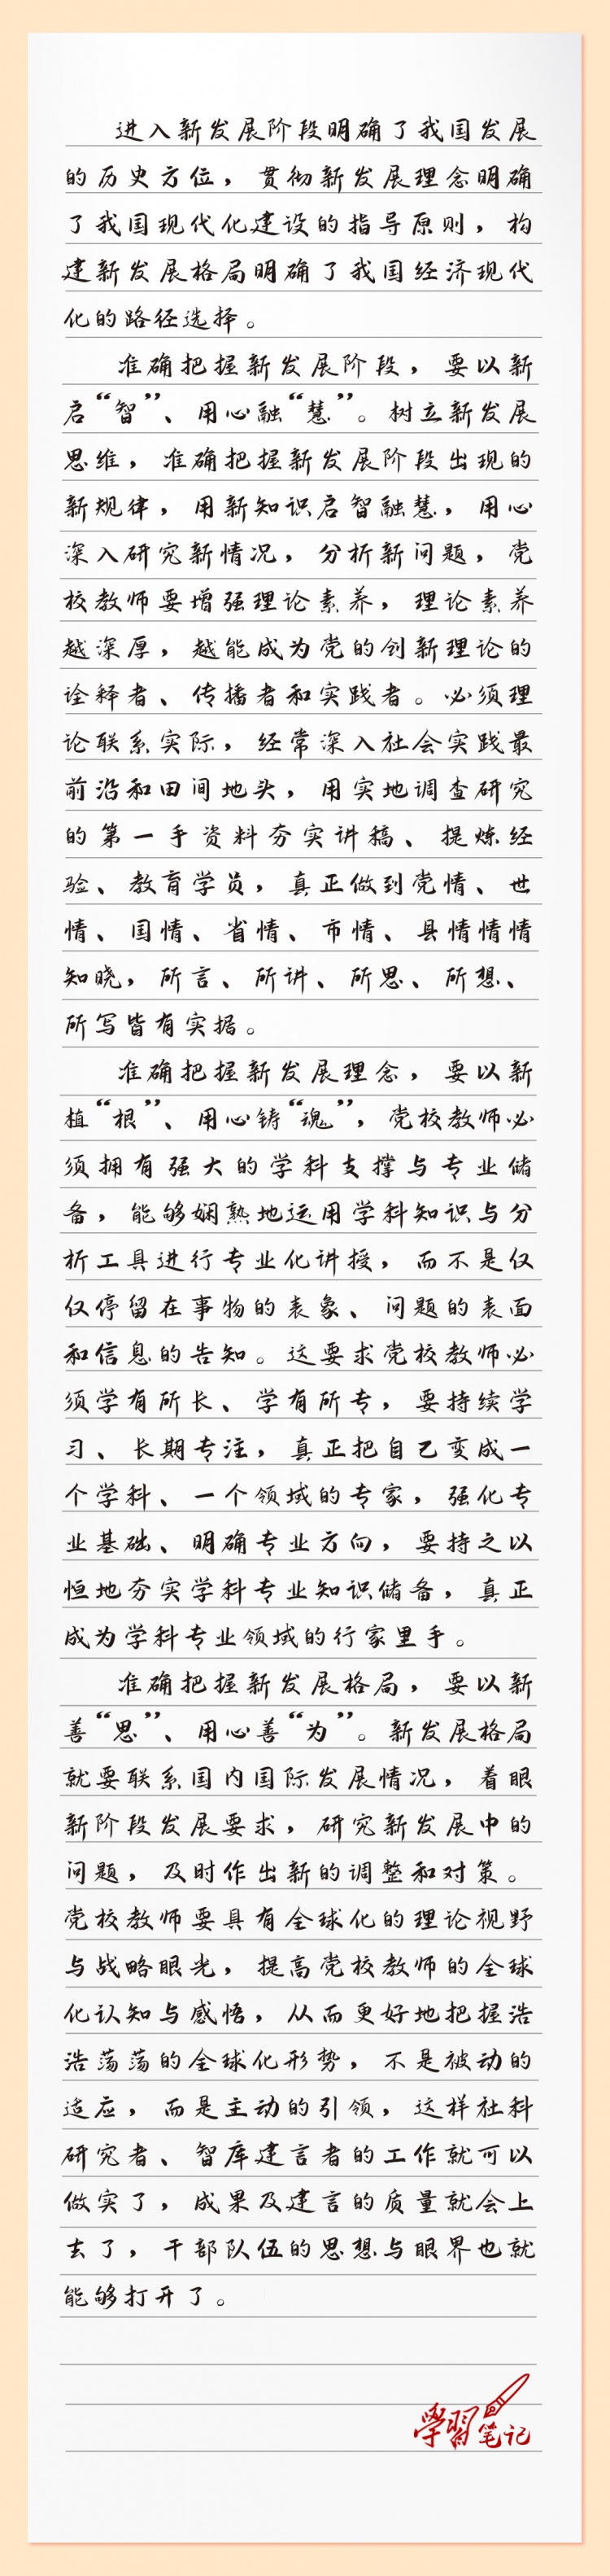 进入新发展阶段明确了我国发展
的历史方位，贯彻新发展理念明确
了我国现代化建设的指导原则，构
建新发展格局明确了我国经济现代
化的路径选择。
准确把握新发展阶段，要以新
启“智”、用心融“慧”。树立新发展
思维，准确把握新发展阶段出现的
新规律，用新知识启智融慧，用心
深入研究新情况，分析新问题，党
校教师要增强理论素养，理论素养
越深厚，越能成为党的创新理论的
诠释者、传播者和实践者。必须理
论联系实际，经常深入社会实践最
前沿和田间地头，用实地调查研究
的第一手资料夯实讲稿、提炼经
验、教育学员，真正做到党情、世
情、国情、省情、市情、县情情情
知晓，所言、所讲、所思、所想、
所写皆有实据。
准确把握新发展理念，要以新
植“根”、用心铸“魂”，党校教师必
须拥有强大的学科支撑与专业储
备，能够娴熟地运用学科知识与分
析工具进行专业化讲授，而不是仅
仅停留在事物的表象、问题的表面
和信息的告知。这要求党校教师必
须学有所长、学有所专，要持续学
习、长期专注，真正把自己变成一
个学科、一个领域的专家，强化专
业基础、明确专业方向，要持之以
恒地夯实学科专业知识储备，真正
成为学科专业领域的行家里手。
准确把握新发展格局，要以新
善“思”、用心善“为”。新发展格局
就要联系国内国际发展情况，着眼
新阶段发展要求，研究新发展中的
问题，及时作出新的调整和对策。
党校教师要具有全球化的理论视野
与战略眼光，提高党校教师的全球
化认知与感悟，从而更好地把握浩
浩荡荡的全球化形势，不是被动的
适应，而是主动的引领，这样社科
研究者、智库建言者的工作就可以
做实了，成果及建言的质量就会上
去了，干部队伍的思想与眼界也就
能够打开了。
學習笔记